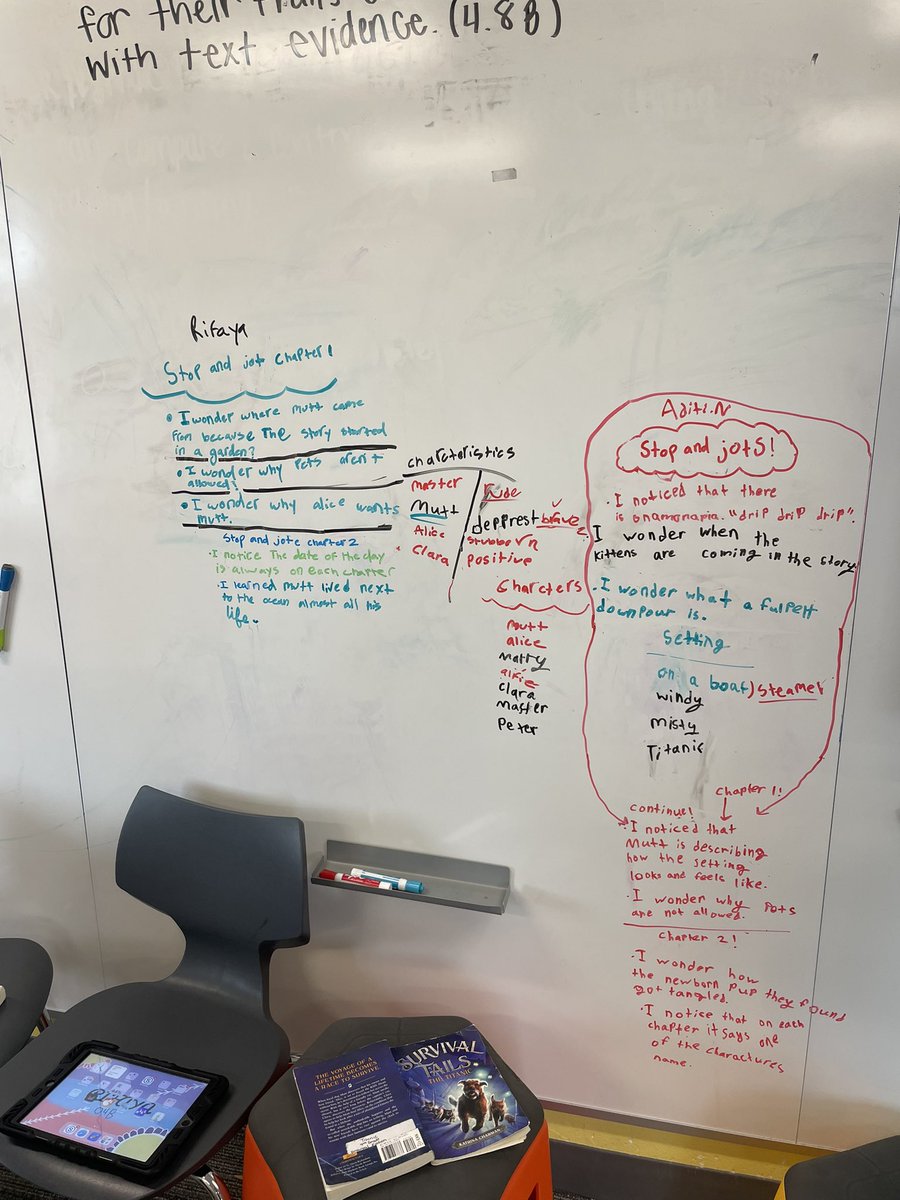 for their
with text evidence. (4.8B)
Rifaya
Stop and jot chapter 1
• I wonder where mutt came
from because The story started
in a garden?
• I wonder why Pets aren't
allowed?
• I wonder why alice wants
mutt.
Stop and jote chapter 2
• I notice The date of the day
is always on each chapter
• I learned mutt lived next
to the ocean almost all his
life.
charcteristics
master
Mutt
Alice
Clara
rude
depprest brave
stubborn
positive
Charcters
mutt
alice
Matty
alfie
Clara
Master
Peter
Aditi.N
Stop and jots!
• I noticed that there
is onamonapia. "drip drip drip".
I wonder when the
kittens are coming in the story
• I wonder what a fulpelt
downpour is.
Setting
on a boat) steamer
windy
Misty
Titanic
chapter 1!
continue!
• I noticed that
Mutt is describing
how the setting
looks and feels like.
• I wonder why Pets
are not allowed.
chapter 2!
• I wonder how
the newborn pup they found
got tangled.
• I notice that on each
chapter it says one
of the charactures
name.
Rifaya
04B
THE VOYAGE OF A
LIFETIME BECOMES
A RACE TO SURVIVE.
SURVIVAL
TAILS
THE TITANIC
KATRINA CHARMAN